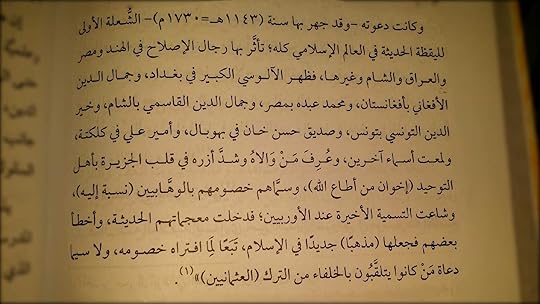 وكانت دعوته -وقد جهر بها سنة (١١٤٣هـ=١٧٣٠م)- الشُّعلة الأولى
لليقظة الحديثة في العالم الإسلامي كله؛ تأثَّر بها رجال الإصلاح في الهند ومصر
والعراق والشام وغيرها، فظهر الآلوسي الكبير في بغداد، وجمال الدين
الأفغاني بأفغانستان، ومحمد عبده بمصر، وجمال الدين القاسمي بالشام، وخير
الدين التونسي بتونس، وصديق حسن خان في بهوبال، وأمير علي في كلكتة،
ولمعت أسماء آخرين، وعُرِفَ مَنْ وَالاهُ وشدَّ أزره في قلب الجزيرة بأهل
التوحيد (إخوان من أطاع الله)، وسمَّاهم خصومهم بالوهَّابيين (نسبة إليه)،
وشاعت التسمية الأخيرة عند الأوربيين؛ فدخلت معجماتهم الحديثة، وأخطأ
بعضهم فجعلها (مذهبًا) جديدًا في الإسلام، تَبَعًا لِمَا افتراه خصومه، ولا سيما
دعاة مَنْ كانوا يتلقَّبُون بالخلفاء من الترك (العثمانيين)»(١).